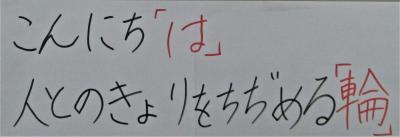 こんにち「は」
人とのきょりをちぢめる「輪」